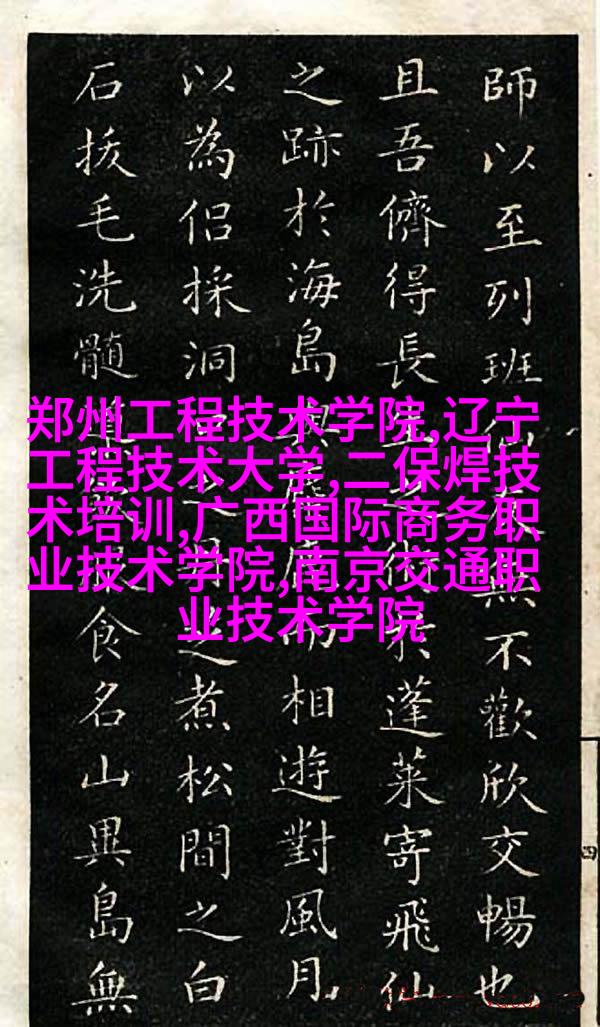 師以至列班無不歡欣交暢也
且吾儕得長於蓬萊寄飛仙
之跡於海島而相遊對風月
以為侶採洞之煮松間之白
石拔毛洗髓食名山異島無
郑州工程技术学院,辽宁
工程技术大学,二保焊技
术培训,广西国际商务职
业技术学院,南京交通职
业技术学院